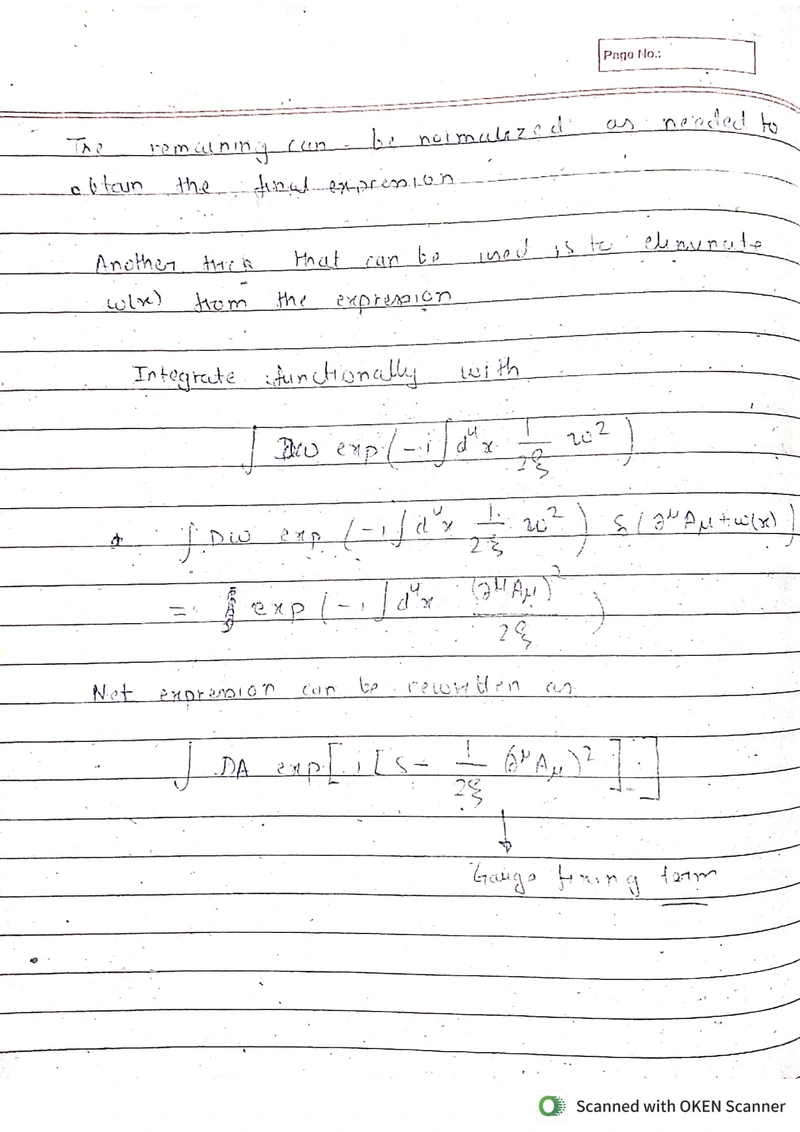 Page No.:
The remaining can be normalized as needed to
obtain the final expression
Another trick that can be used is to eliminate
ω(x) from the expression
Integrate functionally with
∫ Dω exp(-i∫d⁴x 1/2ξ ω²)
∫ Dω exp (-i∫d⁴x 1/2ξ ω²) δ(∂^μ A_μ + ω(x))
= exp (-i∫d⁴x (∂^μ A_μ)²/2ξ)
Net expression can be rewritten as
∫ DA exp[i[S - 1/2ξ (∂^μ A_μ)²]]
↓
Gauge fixing term
Scanned with OKEN Scanner